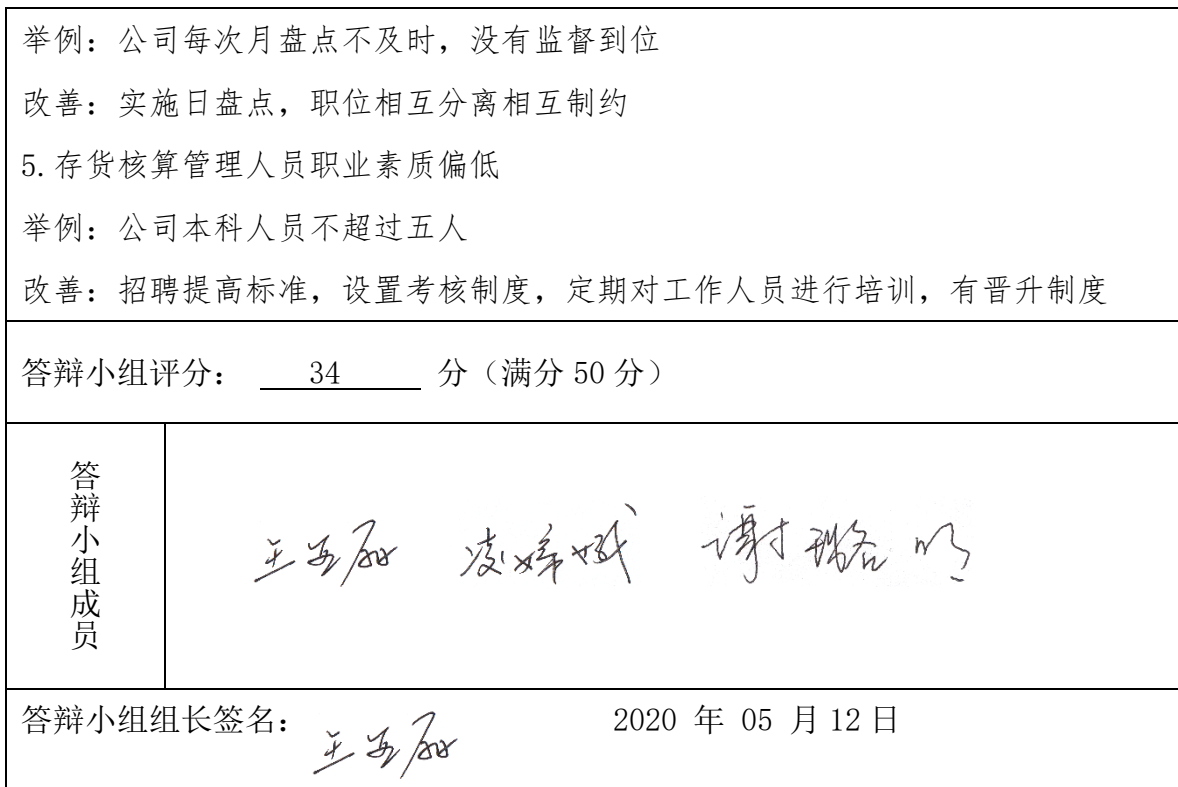 举例：公司每次月盘点不及时，没有监督到位
改善：实施日盘点，职位相互分离相互制约
5.存货核算管理人员职业素质偏低
举例：公司本科人员不超过五人
改善：招聘提高标准，设置考核制度，定期对工作人员进行培训，有晋升制度
答辩小组评分： 34 分（满分 50 分）
答辩小组成员
谢璐明
答辩小组组长签名： 2020 年 05 月 12 日